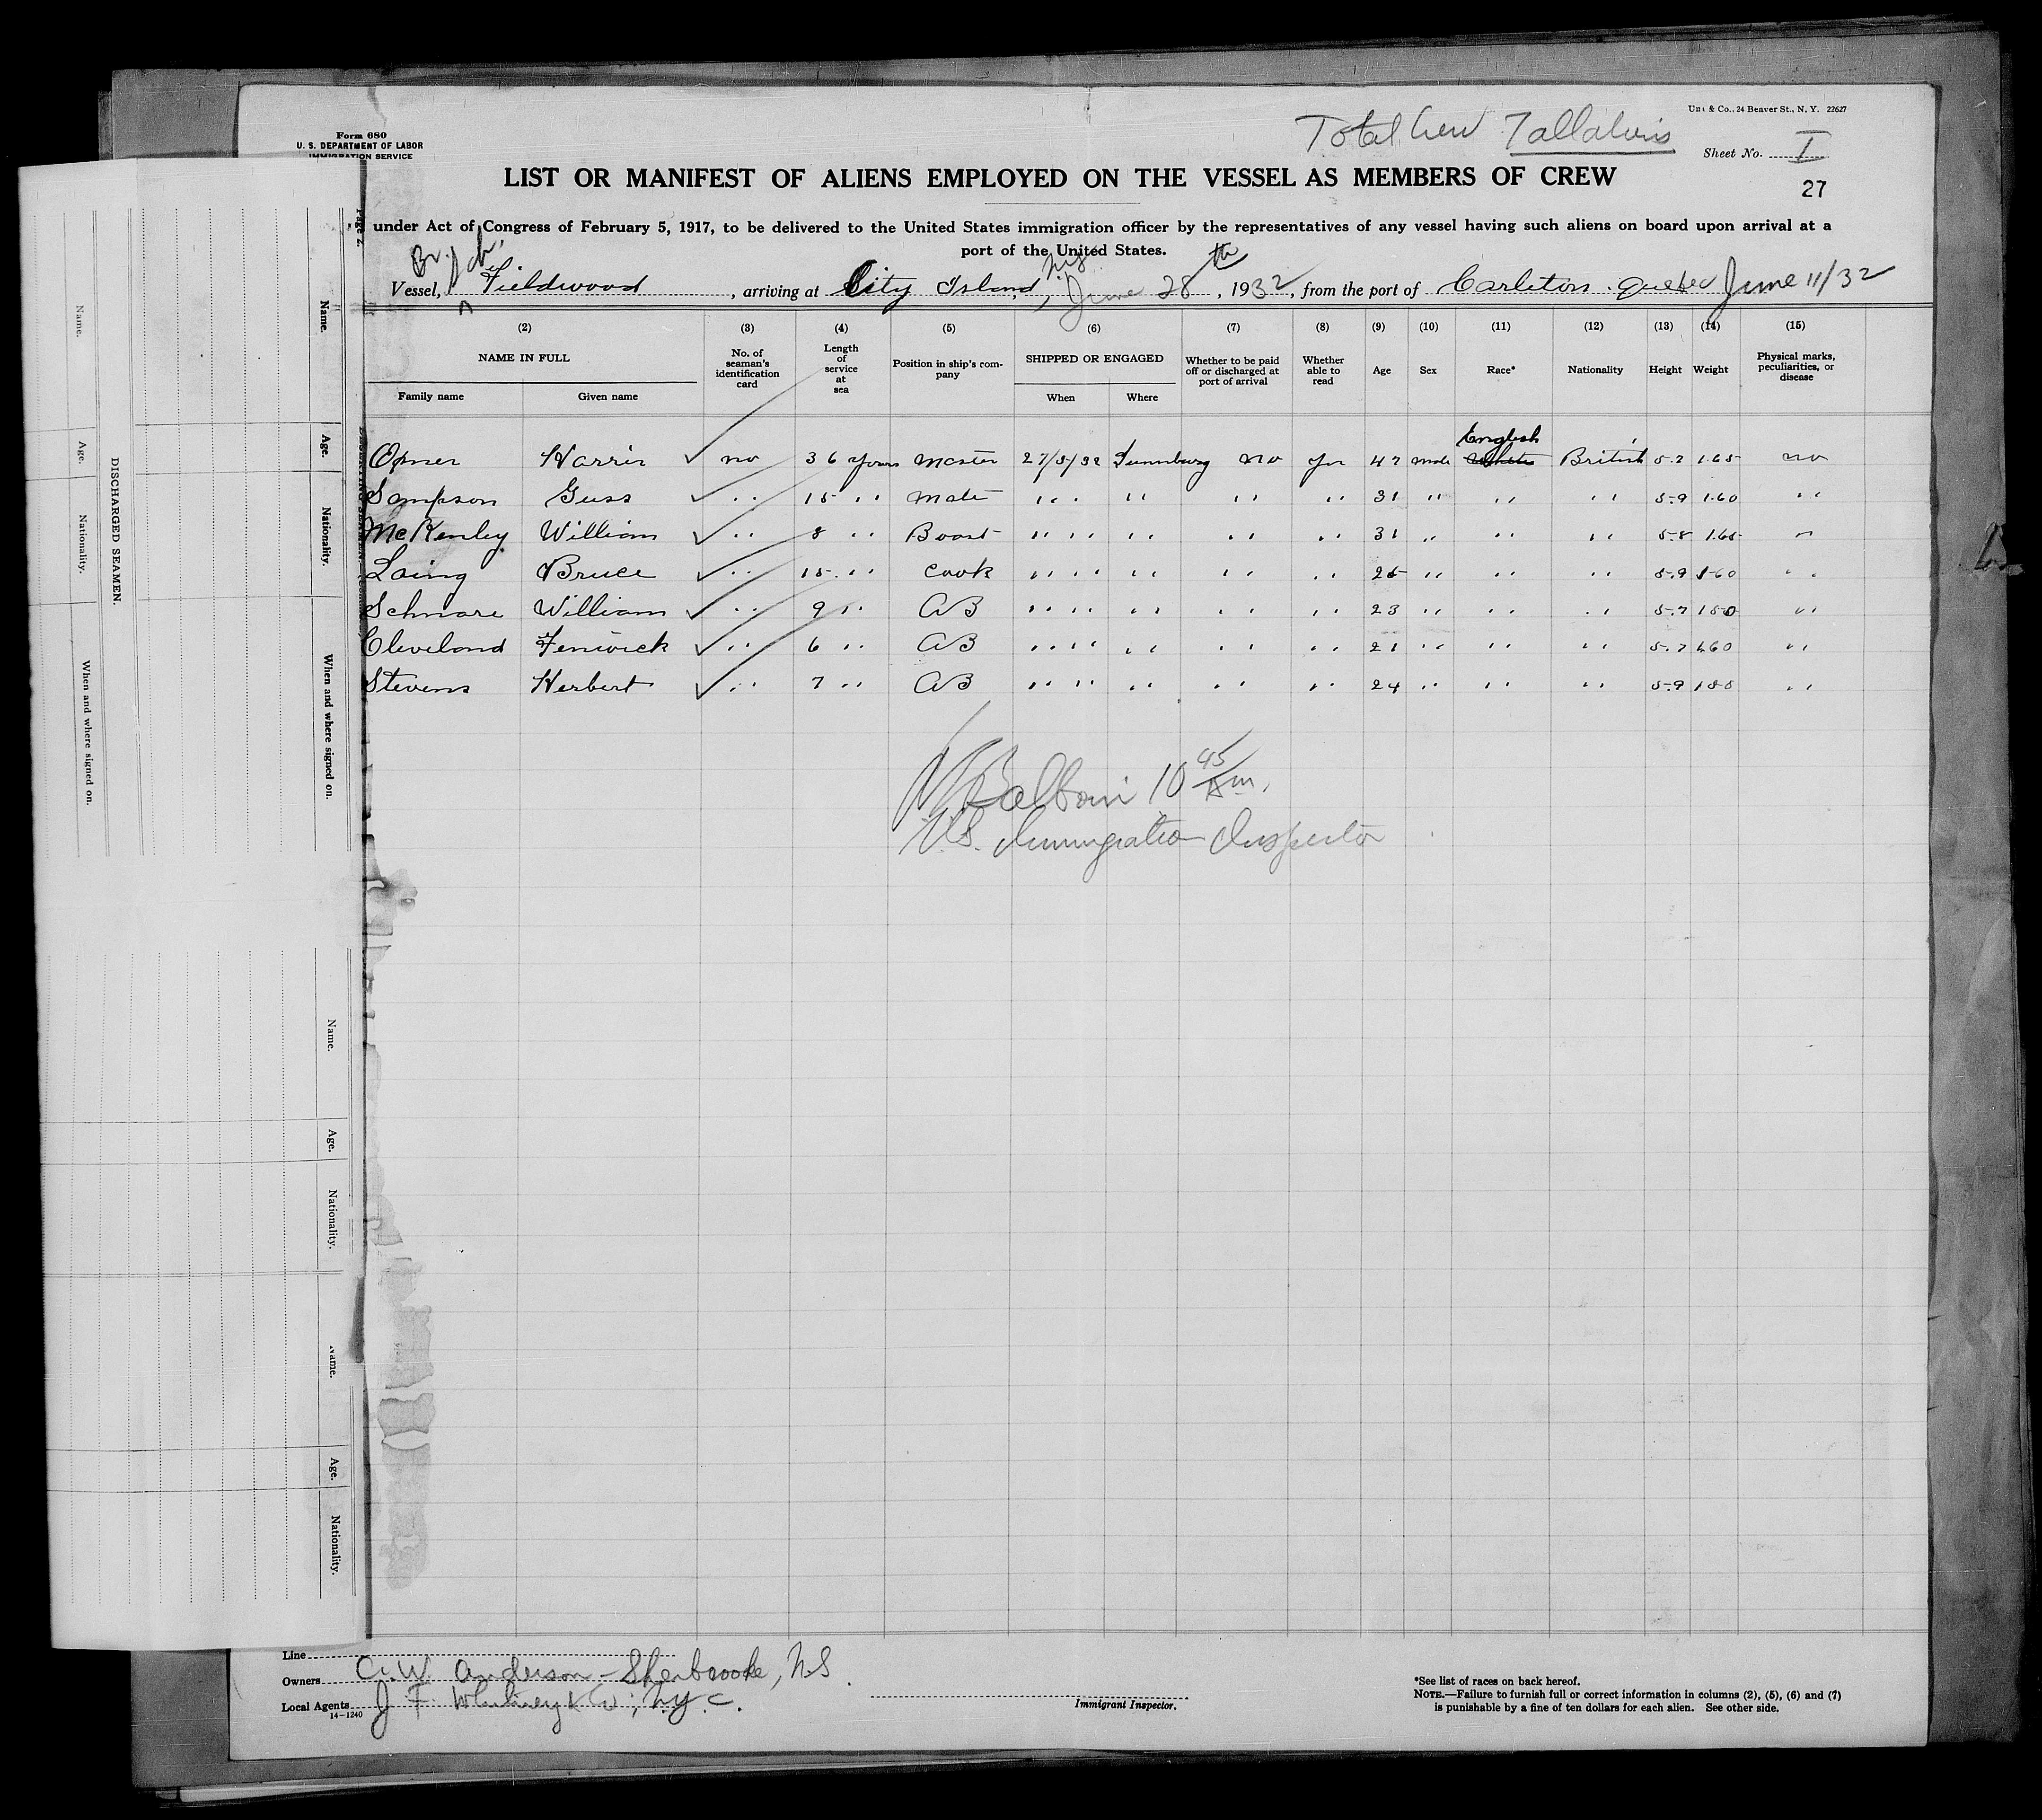 Unz & Co., 24 Beaver St., N. Y. 22627
Form 680
U. S. DEPARTMENT OF LABOR
IMMIGRATION SERVICE
Total Crew 7 all aliens
Sheet No. I
27
LIST OR MANIFEST OF ALIENS EMPLOYED ON THE VESSEL AS MEMBERS OF CREW
under Act of Congress of February 5, 1917, to be delivered to the United States immigration officer by the representatives of any vessel having such aliens on board upon arrival at a
port of the United States.
Vessel, Br. Sch. Fieldwood, arriving at City Island, N.Y. June 28th, 1932, from the port of Carleton Quebec June 11/32
(2) (3) (4) (5) (6) (7) (8) (9) (10) (11) (12) (13) (14) (15)
NAME IN FULL
Family name Given name
No. of seaman's identification card
Length of service at sea
Position in ship's company
SHIPPED OR ENGAGED
When Where
Whether to be paid off or discharged at port of arrival
Whether able to read
Age Sex Race* Nationality Height Weight
Physical marks, peculiarities, or disease
English
Harris no 36 years master 27/5/32 no yes 47 male White British 5-7 165 no
Sampson Guss " 15 " mate " " " " 31 " " " 5-9 160 "
McKenley William " 8 " " " " " 31 " " " 5-8 165 "
Laing Bruce " 15 " cook " " " " 25 " " " 5-9 160 "
Schnare William " 9 " AB " " " " 23 " " " 5-7 150 "
Cleveland Fenwick " 6 " AB " " " " 21 " " " 5-7 160 "
Stevens Herbert " 7 " AB " " " " 24 " " " 5-9 "
10 45 Am.
U.S. Immigration Inspector
Line
Owners C. W. Anderson - Sherbrooke, N.S.
Local Agents J F Whitney & Co., N.Y.C.
14-1240
Immigrant Inspector.
*See list of races on back hereof.
NOTE.—Failure to furnish full or correct information in columns (2), (5), (6) and (7)
is punishable by a fine of ten dollars for each alien. See other side.
Page 2.
DISCHARGED SEAMEN.
Name. Age. Nationality. When and where signed on.
Name. Age. Nationality. When and where signed on.
Name. Age. Nationality.
Name. Age. Nationality.